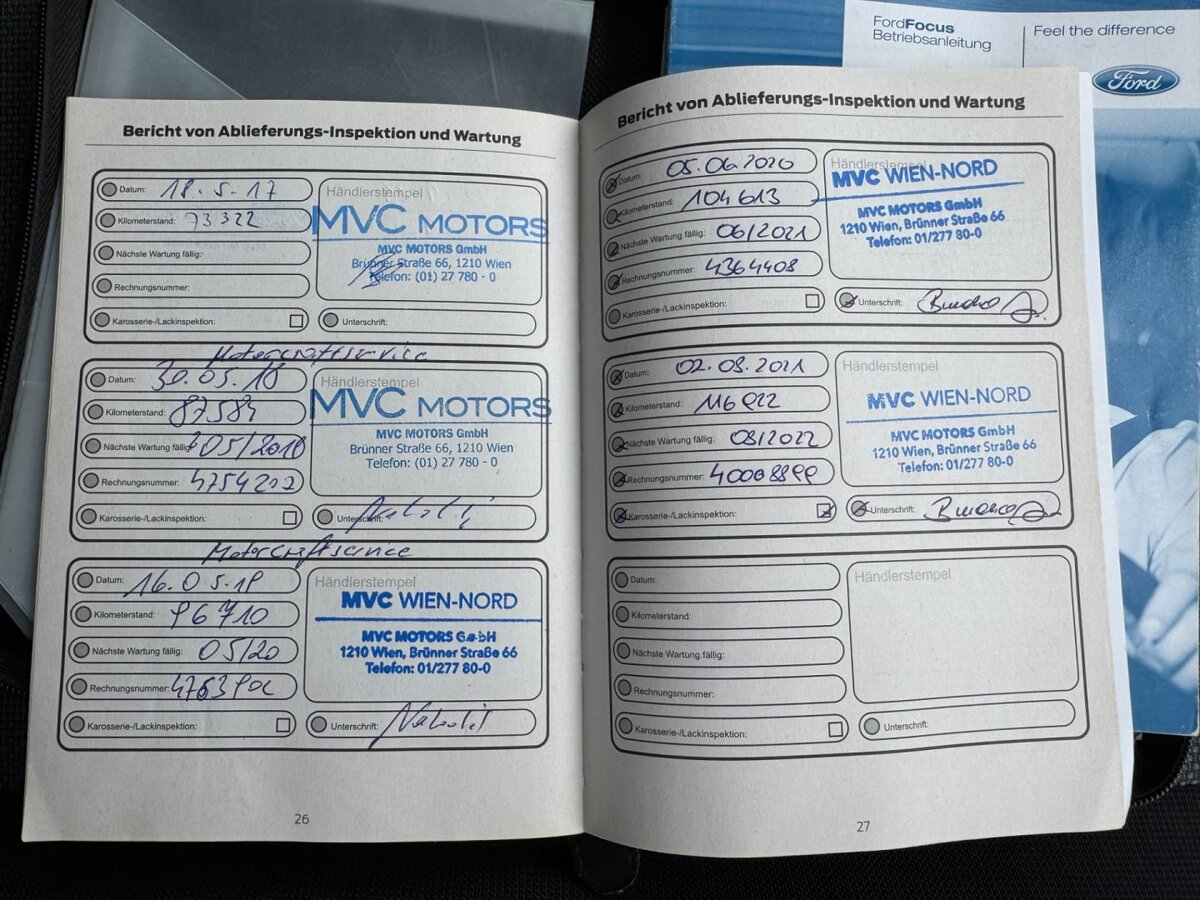 FordFocus
Betriebsanleitung
Feel the difference
Ford
Bericht von Ablieferungs-Inspektion und Wartung
Datum: 18.5.17
Kilometerstand: 73322
Nächste Wartung fällig:
Rechnungsnummer:
Karosserie-/Lackinspektion:
Händlerstempel
MVC MOTORS
MVC MOTORS GmbH
Brünner Straße 66, 1210 Wien
Telefon: (01) 27 780 - 0
Unterschrift:
Motorcraftservice
Datum: 30.05.18
Kilometerstand: 87584
Nächste Wartung fällig: 05/2018
Rechnungsnummer: 4754202
Karosserie-/Lackinspektion:
Händlerstempel
MVC MOTORS
MVC MOTORS GmbH
Brünner Straße 66, 1210 Wien
Telefon: (01) 27 780 - 0
Unterschrift:
Motorcraftservice
Datum: 16.05.19
Kilometerstand: 96710
Nächste Wartung fällig: 05/20
Rechnungsnummer:
Karosserie-/Lackinspektion:
Händlerstempel
MVC WIEN-NORD
MVC MOTORS GmbH
1210 Wien, Brünner Straße 66
Telefon: 01/277 80-0
Unterschrift:
26
Bericht von Ablieferungs-Inspektion und Wartung
Datum: 05.06.2020
Kilometerstand: 104613
Nächste Wartung fällig: 06/2021
Rechnungsnummer: 4364408
Karosserie-/Lackinspektion:
Händlerstempel
MVC WIEN-NORD
MVC MOTORS GmbH
1210 Wien, Brünner Straße 66
Telefon: 01/277 80-0
Unterschrift:
Datum: 02.08.2021
Kilometerstand: 116822
Nächste Wartung fällig: 08/2022
Rechnungsnummer: 40008899
Karosserie-/Lackinspektion:
Händlerstempel
MVC WIEN-NORD
MVC MOTORS GmbH
1210 Wien, Brünner Straße 66
Telefon: 01/277 80-0
Unterschrift:
Datum:
Kilometerstand:
Nächste Wartung fällig:
Rechnungsnummer:
Karosserie-/Lackinspektion:
Händlerstempel
Unterschrift:
27